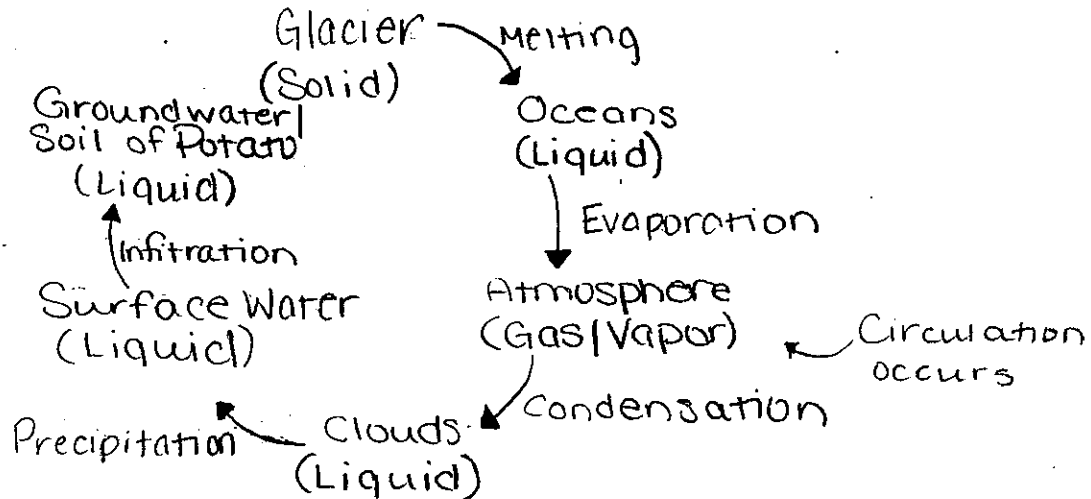 Glacier
(Solid)
Melting
Oceans
(Liquid)
Evaporation
Atmosphere
(Gas/Vapor)
Circulation
occurs
Condensation
Clouds
(Liquid)
Precipitation
Surface Water
(Liquid)
Infitration
Groundwater/
Soil of Potato
(Liquid)